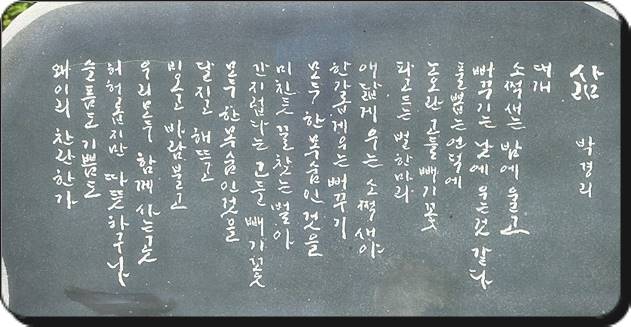 삶 박경리
대개
소쩍새는 밤에 울고
뻐꾸기는 낮에 우는 것 같다
풀 뽑는 언덕에
노오란 고들빼기꽃
파고드는 벌 한 마리
애닯게 우는 소쩍새야
한가롭게 우는 뻐꾸기
모두 한 목숨인 것을
미친 듯 꿀 찾는 벌아
간지럽다는 고들빼기꽃
모두 한 목숨인 것을
달 지고 해 뜨고
비 오고 바람 불고
우리 모두 함께 사는 곳
허허롭지만 따뜻하구나
슬픔도 기쁨도
왜 이리 찬란한가